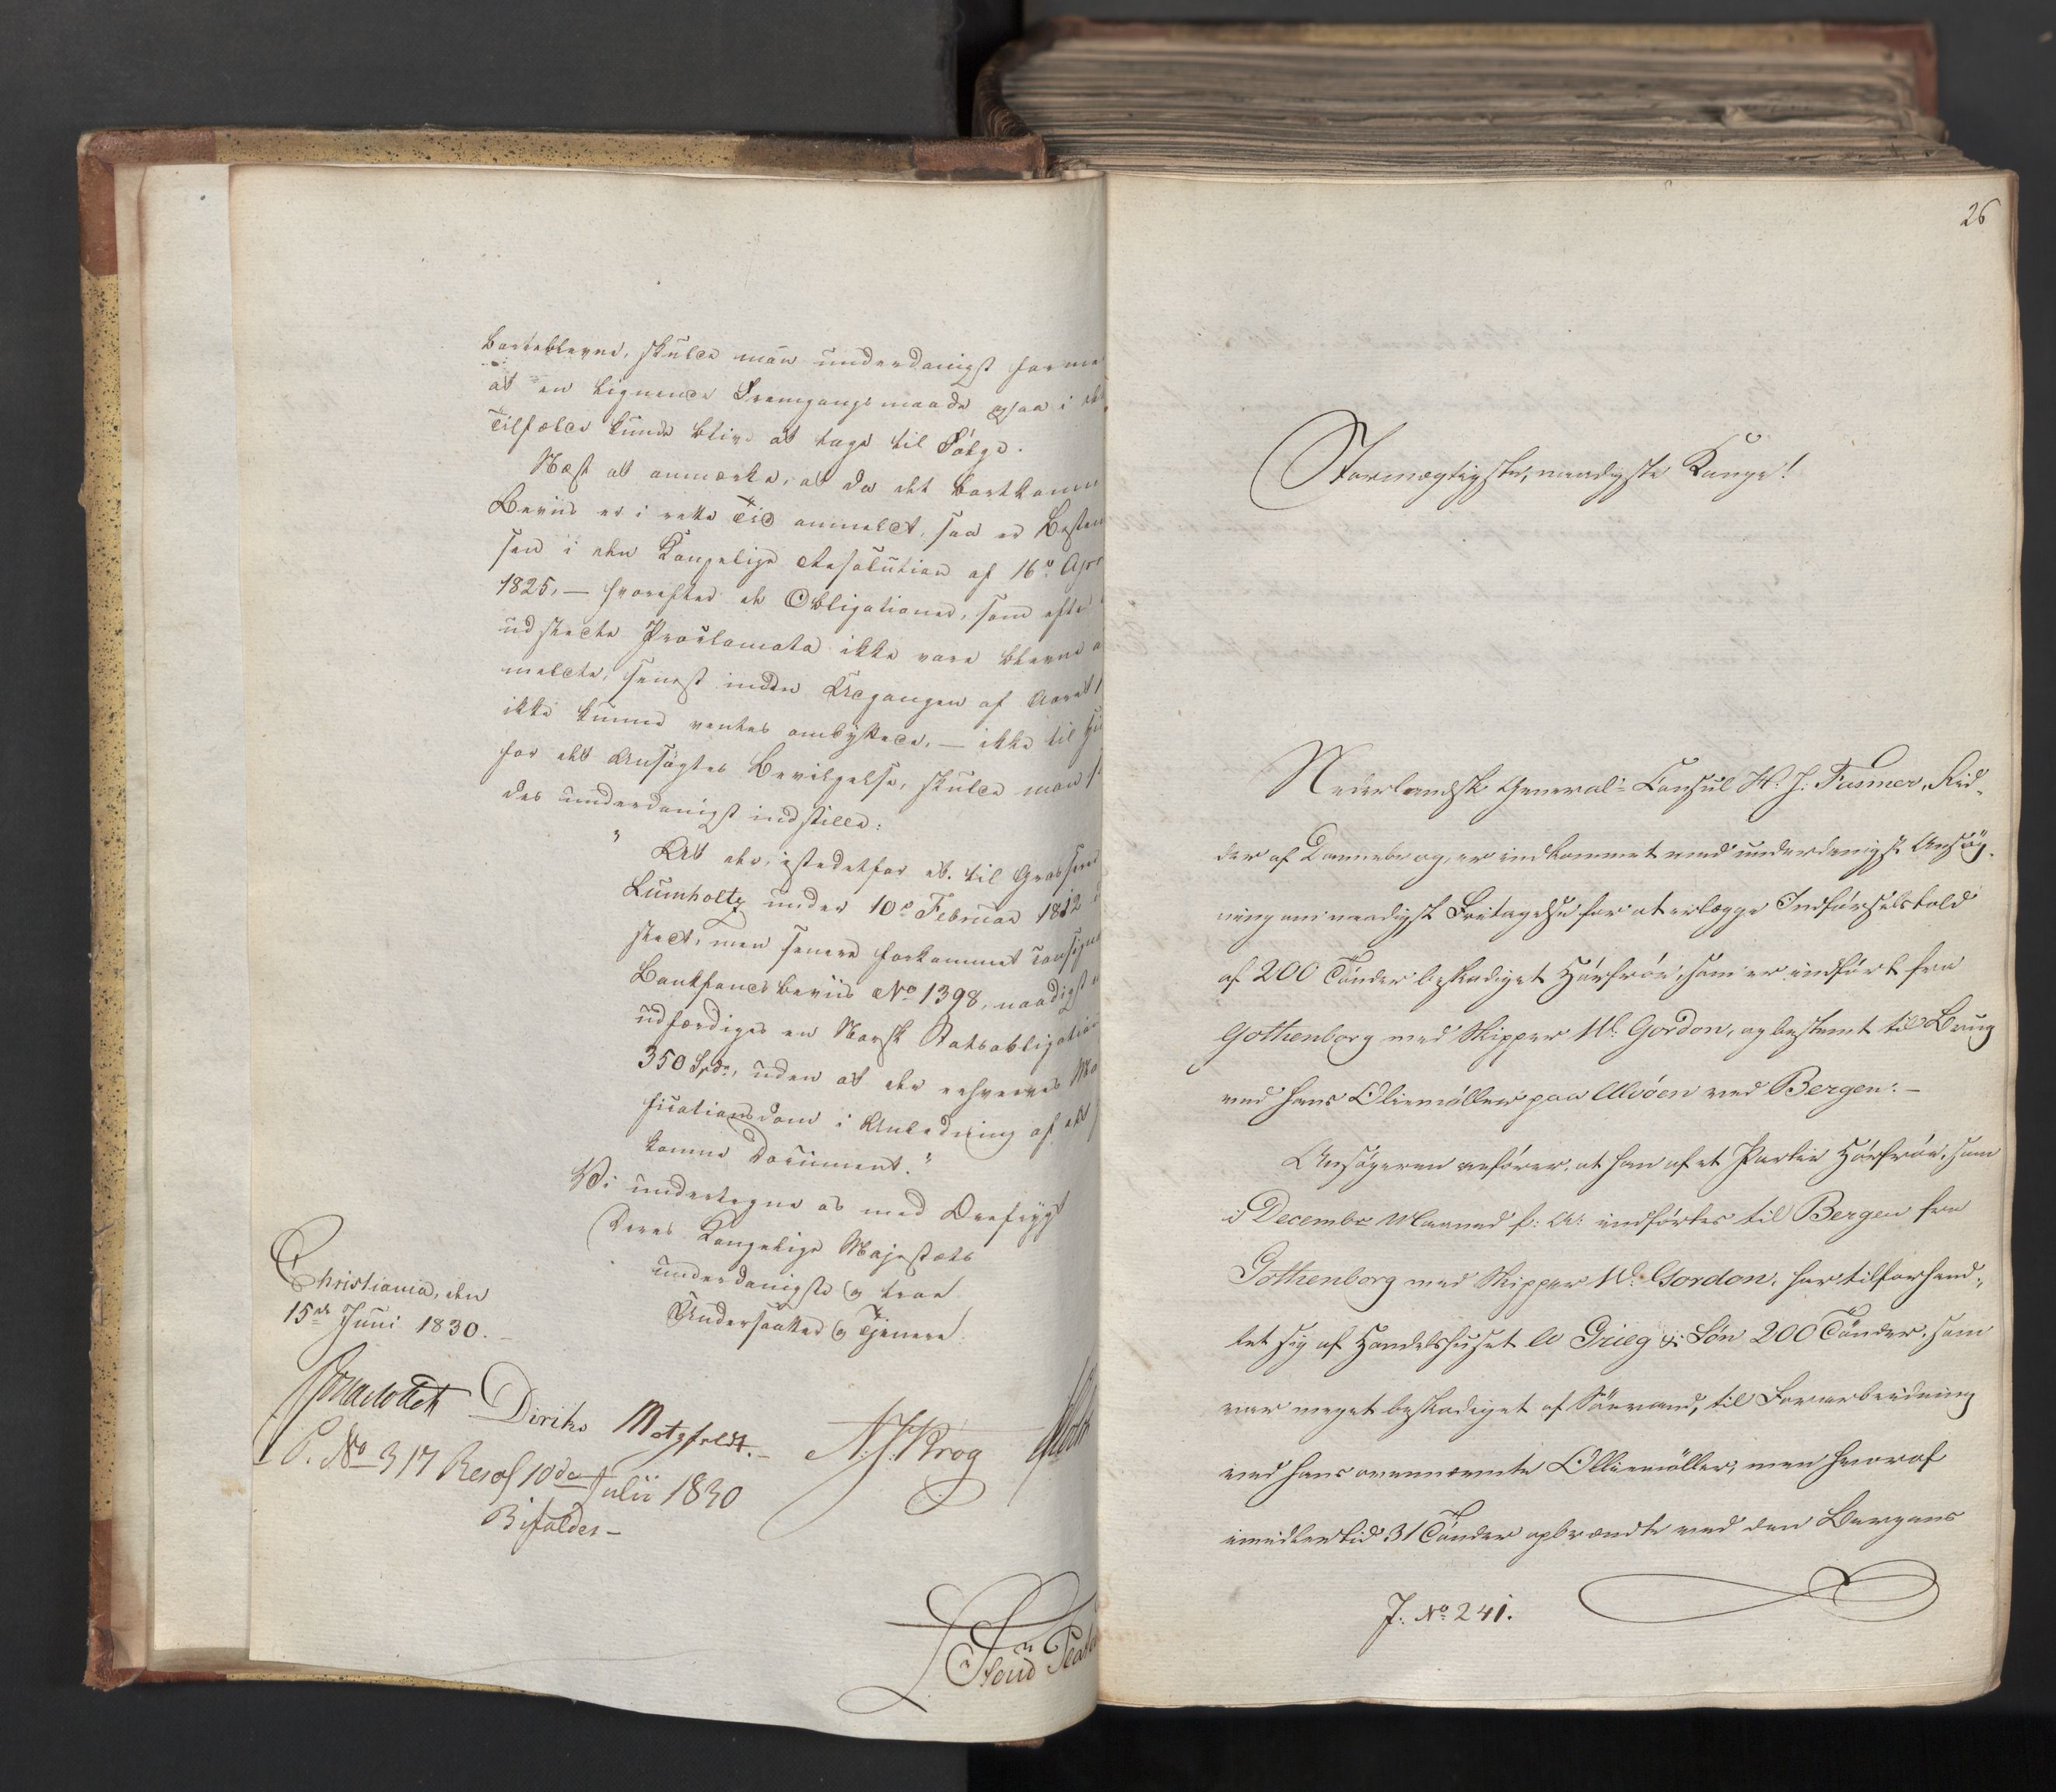 bortblevne, skulde man underdanigst forme
at en lignende Fremgangsmaade ogsaa i
Tilfælde kunde blive at tage til Følge.
Næst at anmærke, at da det bortkomne
Beviis er i rette Tid anmeldt, saa er Bestem
sen i den Kongelige Resolution af 16de Apr
1825, — hvorefter de Obligationer, som efter
udstedte Proclamata ikke vare blevne a
meldte, senest inden Udgangen af Aaret
ikke kunne ventes ombyttede, — ikke til
for det Ansøgtes Bevilgelse, skulde man
des underdanigst indstille:
" At der, istedetfor et til Grosserer
Lumholtz under 10de Februar 1812
stedt, men senere forkommet
Bankfonds beviis No 1398, naadigst
udfærdiges en Norsk Statsobligation
350 Spd., uden at der erhverves Mo
ficationsdom i Anledning af det
komne Document."
Vi undertegne os med Ærefrygt
Deres Kongelige Majestæts
underdanigste og troe
Undersaatter og Tjenere.
Christiania, den
15de Juni 1830.
Diriks Motzfeldt. N. J. Krog
P. No 317 Resol 10de Julii 1830
Bifaldes —
26
Stormægtigste, naadigste Konge!
Nederlandsk General-Consul H. J. Fasmer, Rid-
der af Dannebrog, er indkommet med underdanigst Ansøg-
ning om naadigst Fritagelse for at erlægge Indførselstold
af 200 Tønder beskadiget Hørfrøe, som er indført fra
Gothenborg med Skipper W. Gordon, og bestemt til Brug
ved hans Oliemøller paa Alvøen ved Bergen. —
Ansøgeren anfører, at han af et Partie Hørfrøe, som
i Decembr Maaned f: A: indførtes til Bergen fra
Gothenborg med Skipper W: Gordon, har tilforhand-
let sig af Handelshuset A Grieg & Søn 200 Tønder, som
var meget beskadiget af Søevand, til Forarbeidning
ved hans ovennævnte Olliemøller, men hvoraf
imidlertid 31 Tønder opbrændte ved den Bergens
J. No 241.